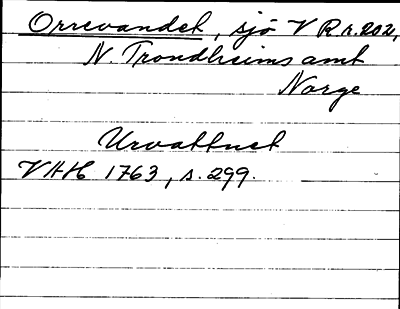 Orrevandet, sjö V R r. 202,
N. Trondheims amt
Norge
Urvattnet
VHH 1763, s. 299.